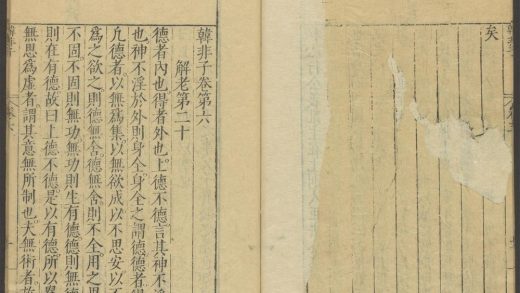 矣
韓非子卷第六
解老第二十
德者内也得者外也上德不德言其神不淫
也神不淫於外則身全身全之謂德德者得
凡德者以無爲集以無欲成以不思安以不
爲之欲之則德無舍德無舍則不全用之思
不固不固則無功無功則生有德德則無德
則在有德故曰上德不德是以有德所以貴
無思爲虚者謂其意無所制也夫無術者故